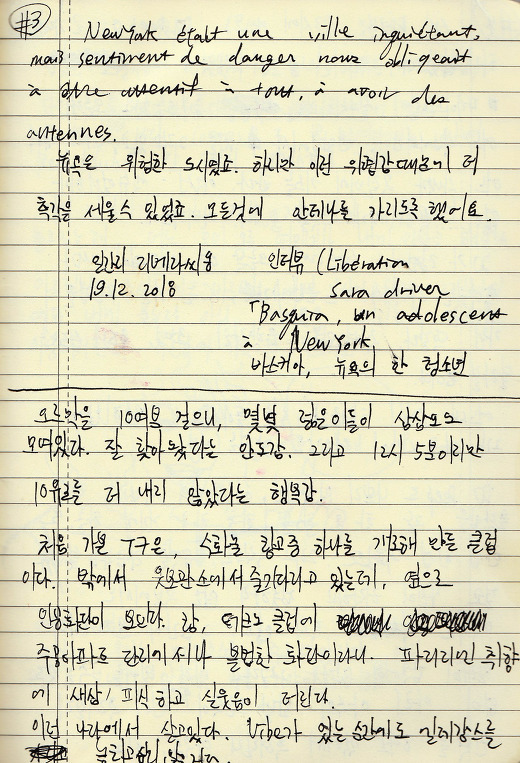 #3
New York était une ville inquiétant,
mais sentiment de danger nous obligeait
à être attentif à tout, à avoir des
antennes.
뉴욕은 위험한 도시였죠. 하지만 이런 위험감 때문에 더
촉각을 세울 수 있었죠. 모든것에 안테나를 가리도록 했어요.
일간지 리베라씨옹 인터뷰 (Libération
19.12.2018 Sara driver
「Basquia, un adolescent
à New York,
바스키아, 뉴욕의 한 청소년
오르막을 10여분 걸으니, 몇몇 젊은이들이 삼삼오오
모여있다. 잘 찾아왔다는 안도감. 그리고 12시 5분이라
10유로를 더 내지 않았다는 행복감.
처음 가본 T7은, 수화물 창고중 하나를 개조해 만든 클럽
이다. 밖에서 옷보관소에서 줄기다리고 있는데, 옆으로
인공화단이 보인다. 참, 테크노 클럽에
주공아파트 단지에서나 볼법한 화단이라니. 파리지엔 취향
에 새삼 피식하고 실웃음이 터진다.
이런 나라에서 살고있다. Vibe가 있는 순간에도 엘레강스를